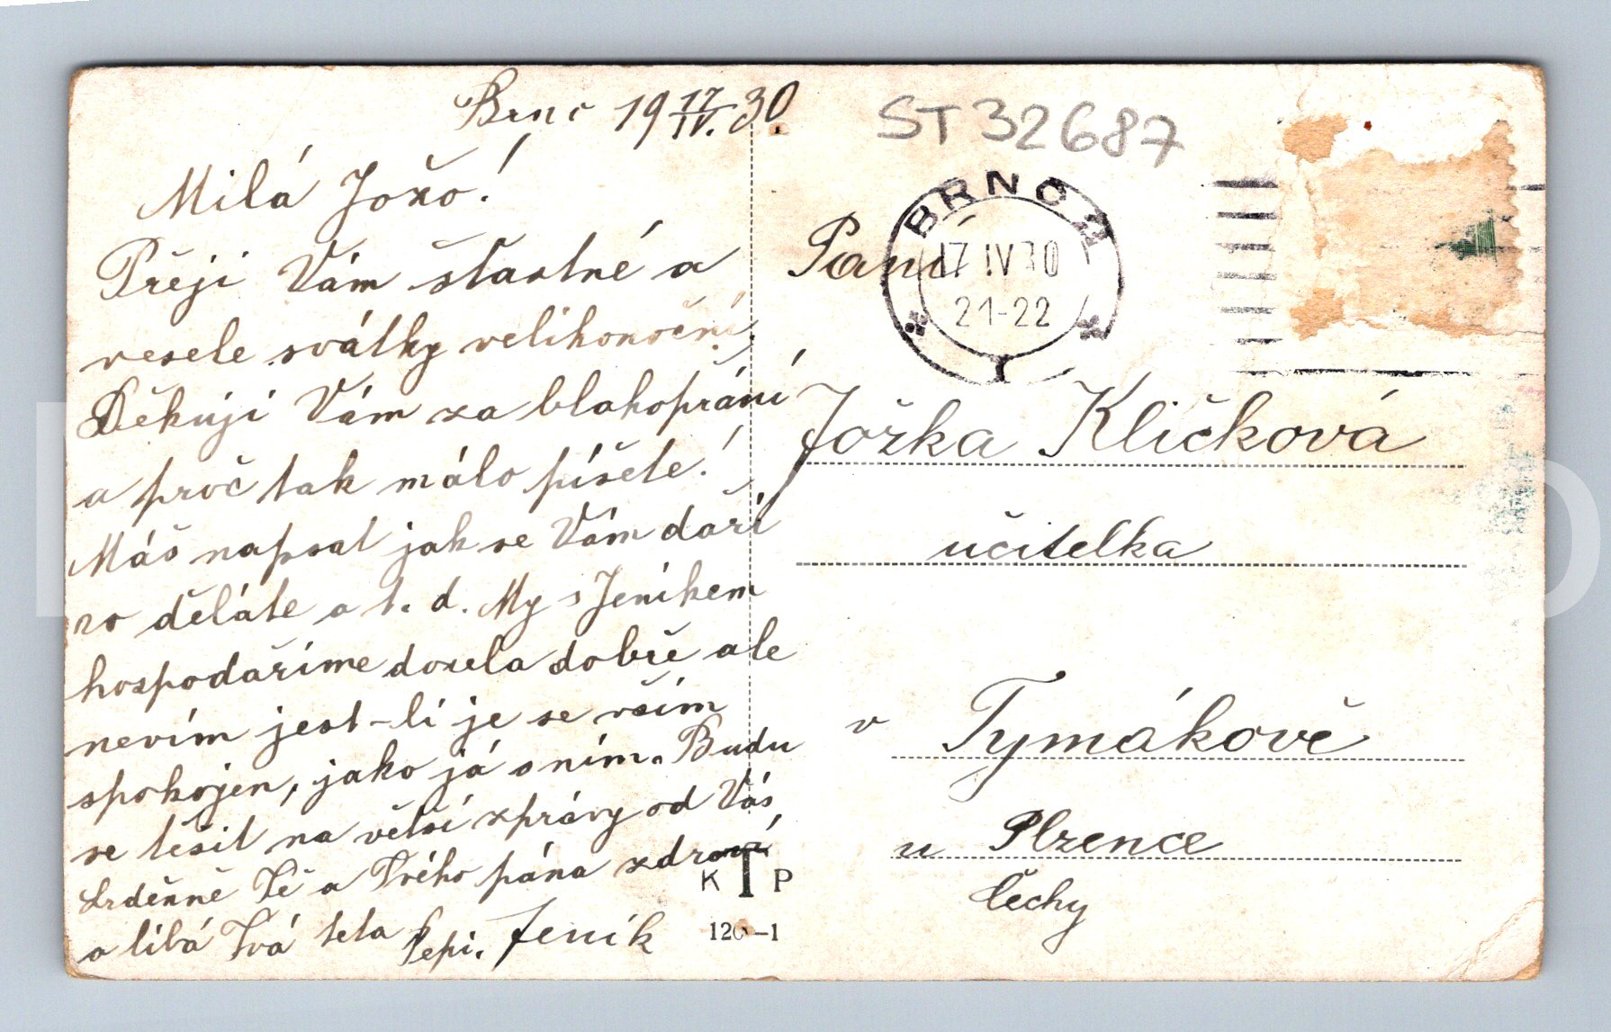 Brno 19 17/IV. 30.
Milá Jožo!
Přeji Vám šťastné a
veselé svátky velikonoční,
Děkuji Vám za blahopřání
a proč tak málo píšete!
Máš napsat jak se Vám daří
co děláte a t. d. My s Jeníkem
hospodaříme docela dobře ale
nevím jest-li je se vším
spokojen, jako já s ním. Budu
se těšit na větší zprávy od Vás
Srděčně Tě a Tvého pána zdraví
a líbá Tvá teta Pepi. Jeník
ST 32687
BRNO 2
17 IV 30
21-22
Paní
Jožka Kličková
učitelka
v Tymákově
u Plzence
Čechy
K T P
126-1